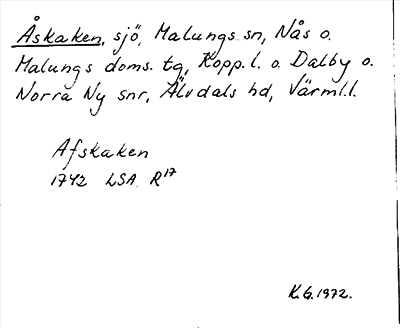 Åskaken, sjö, Malungs sn, Nås o.
Malungs doms. tg, Kopp. l. o. Dalby o.
Norra Ny snr, Älvdals hd, Värml. l.
Afskaken
1742 LSA R17
K.G. 1972.